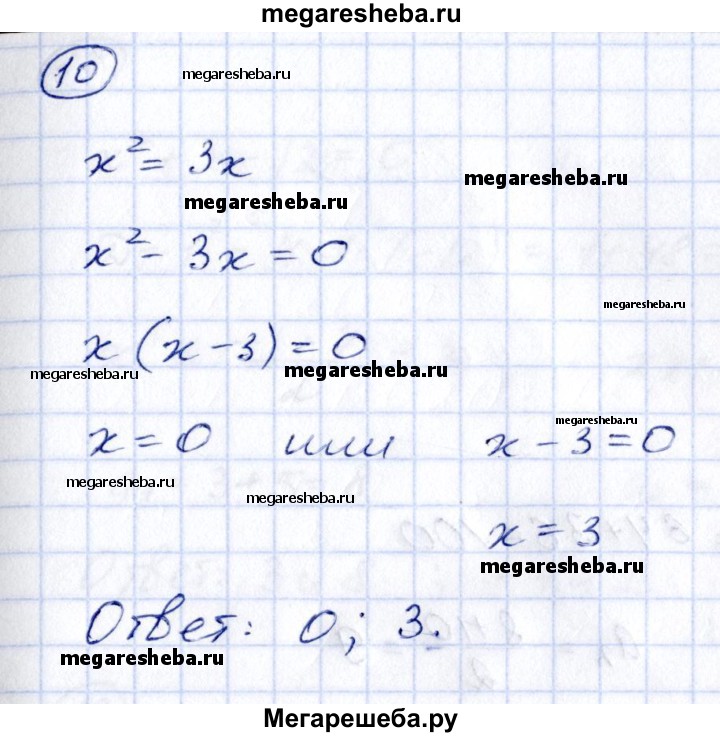 megaresheba.ru
10 megaresheba.ru
x² = 3x
megaresheba.ru
megaresheba.ru
x² - 3x = 0
megaresheba.ru
x (x - 3) = 0
megaresheba.ru
megaresheba.ru
megaresheba.ru
x = 0 или x - 3 = 0
megaresheba.ru
megaresheba.ru
x = 3
megaresheba.ru
Ответ: 0; 3.
megaresheba.ru
Мегарешеба.ру